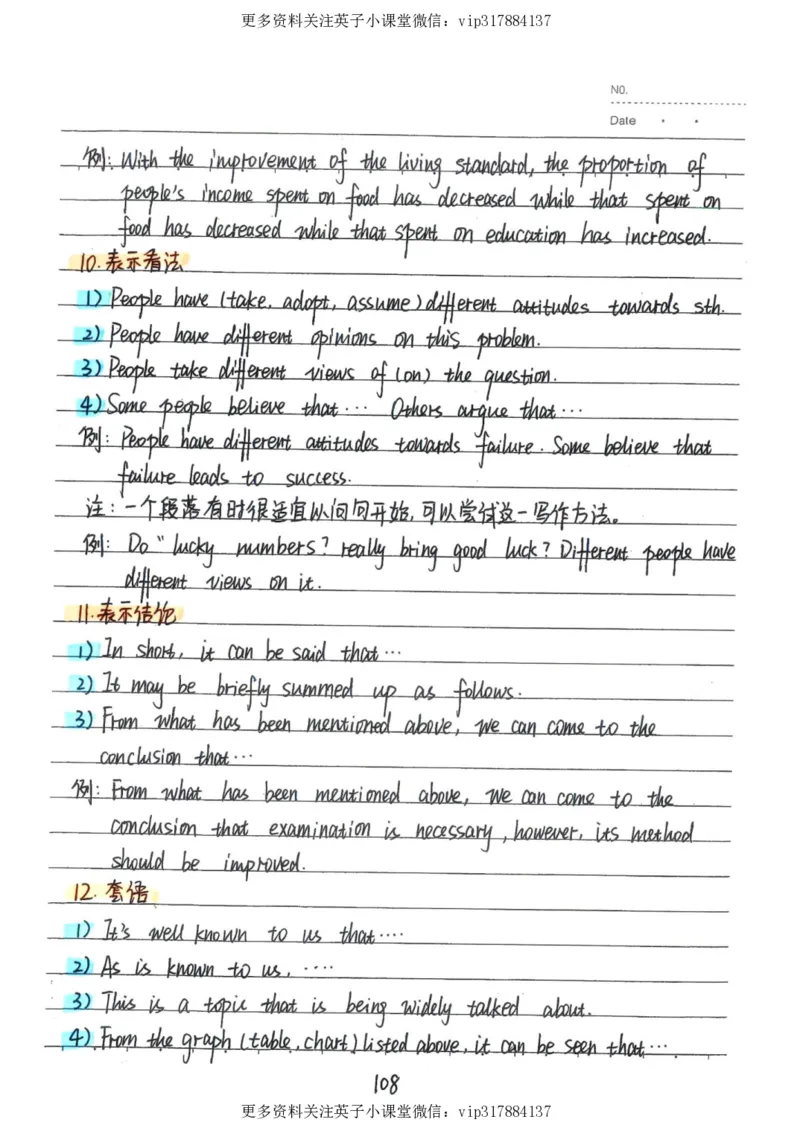 更多资料关注英子小课堂微信：vip317884137
NO.
Date
例: With the improvement of the living standard, the proportion of
people's income spent on food has decreased while that spent on
food has decreased while that spent on education has increased.
10.表示看法
1) People have (take, adopt, assume) different attitudes towards sth.
2) People have different opinions on this problem.
3) People take different views of (on) the question.
4) Some people believe that… Others argue that…
例: People have different attitudes towards failure. Some believe that
failure leads to success.
注: 一个段落有时很适宜以问句开始,可以尝试这一写作方法。
例: Do "lucky numbers? really bring good luck? Different people have
different views on it.
11.表示结论
1) In short, it can be said that…
2) It may be briefly summed up as follows.
3) From what has been mentioned above, we can come to the
conclusion that…
例: From what has been mentioned above, we can come to the
conclusion that examination is necessary, however, its method
should be improved.
12.套语
1) It's well known to us that….
2) As is known to us, ….
3) This is a topic that is being widely talked about.
4) From the graph (table, chart) listed above, it can be seen that…
108
更多资料关注英子小课堂微信：vip317884137